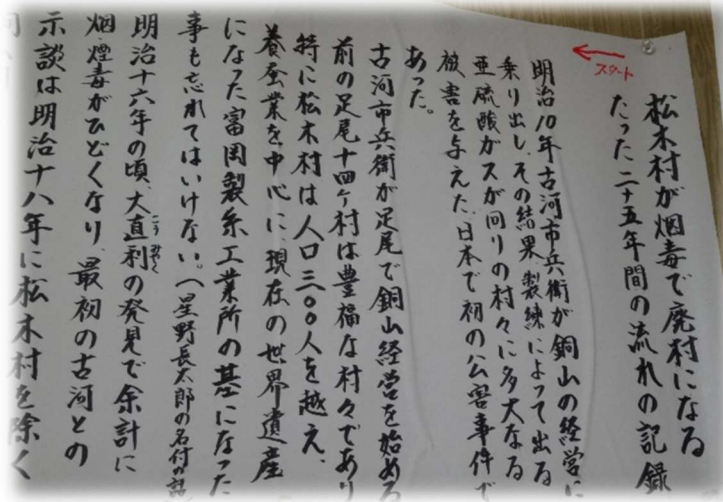 スタート
松木村が烟毒で廃村になる
たった二十五年間の流れの記録
明治10年古河市兵衛が銅山の経営に
乗り出し、その結果、製練によって出る
亜硫酸ガスが回りの村々に多大なる
被害を与えた、日本で初の公害事件で
あった。
古河市兵衛が足尾で銅山経営を始める
前の足尾十四ヶ村は豊福な村々であり
特に松木村は人口三〇〇人を越え、
養蚕業を中心に、現在の世界遺産
になった富岡製糸工業所の基になった
事も忘れてはいけない。(星野長太郎の名付の
明治十六年の頃、大直利の発見で余計に
烟・煙毒がひどくなり、最初の古河との
示談は明治十八年に松木村を除く